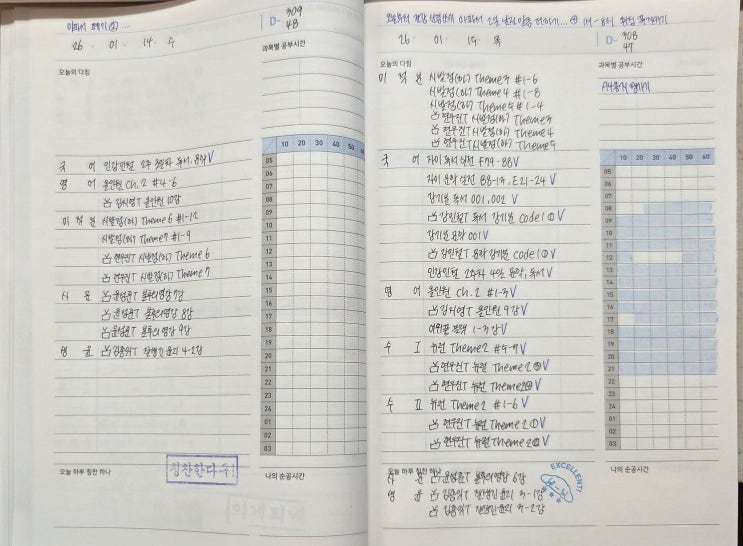 26 . 01 . 14 . 수
D- 309
48
오늘의 다짐
과목별 공부시간
10 20 30 40 50 60
국 어 인강민철 2주 3일차 독서, 문학 V
영 어 올인원 Ch.2 #4-6
김지영T 올인원 10강
미 적 분 시발점(하) Theme 6 #1-12
시발점(하) Theme 7 #1-9
현우진T 시발점(하) Theme 6
현우진T 시발점(하) Theme 7
사 문 윤성훈T 불후의명강 7강
윤성훈T 불후의명강 8강
윤성훈T 불후의명강 9강
생 윤 김종익T 잘생긴윤리 4-2강
05
06
07
08
09
10
11
12
13
14
15
16
17
18
19
20
21
22
23
24
01
02
03
오늘 하루 칭찬 하나
칭찬한다우!
나의 순공시간
26 . 01 . 15 . 목
D- 308
47
오늘의 다짐
과목별 공부시간
미 적 분 시발점(하) Theme 3 #1-6
시발점(하) Theme 4 #1-8
시발점(하) Theme 5 #1-4
현우진T 시발점(하) Theme 3
현우진T 시발점(하) Theme 4
현우진T 시발점(하) Theme 5
국 어 자이 독서 실전 F79-88 V
자이 문학 실전 B8-13, E21-24 V
강기분 독서 001, 002 V
강민철T 독서 강기분 code 1 ① V
강기분 문학 001 V
강민철T 문학 강기분 code 1 ① V
인강민철 2주차 4일 문학, 독서 V
영 어 올인원 Ch.2 #1-3 V
김지영T 올인원 9강 V
1-3강 V
수 Ⅰ 뉴런 Theme 2 #5-7 V
현우진T 뉴런 Theme 2 V
현우진T 뉴런 Theme 2 V
수 Ⅱ 뉴런 Theme 2 #1-6 V
현우진T 뉴런 Theme 2 ① V
현우진T 뉴런 Theme 2 ② V
10 20 30 40 50 60
05
06
07
08
09
10
11
12
13
14
15
16
17
18
19
20
21
22
23
24
01
02
03
오늘 하루 칭찬 하나
나의 순공시간
사 문 윤성훈T 불후의명강 6강
생 윤 김종익T 잘생긴윤리 3-1강
김종익T 잘생긴윤리 3-2강
EXCELLENT!